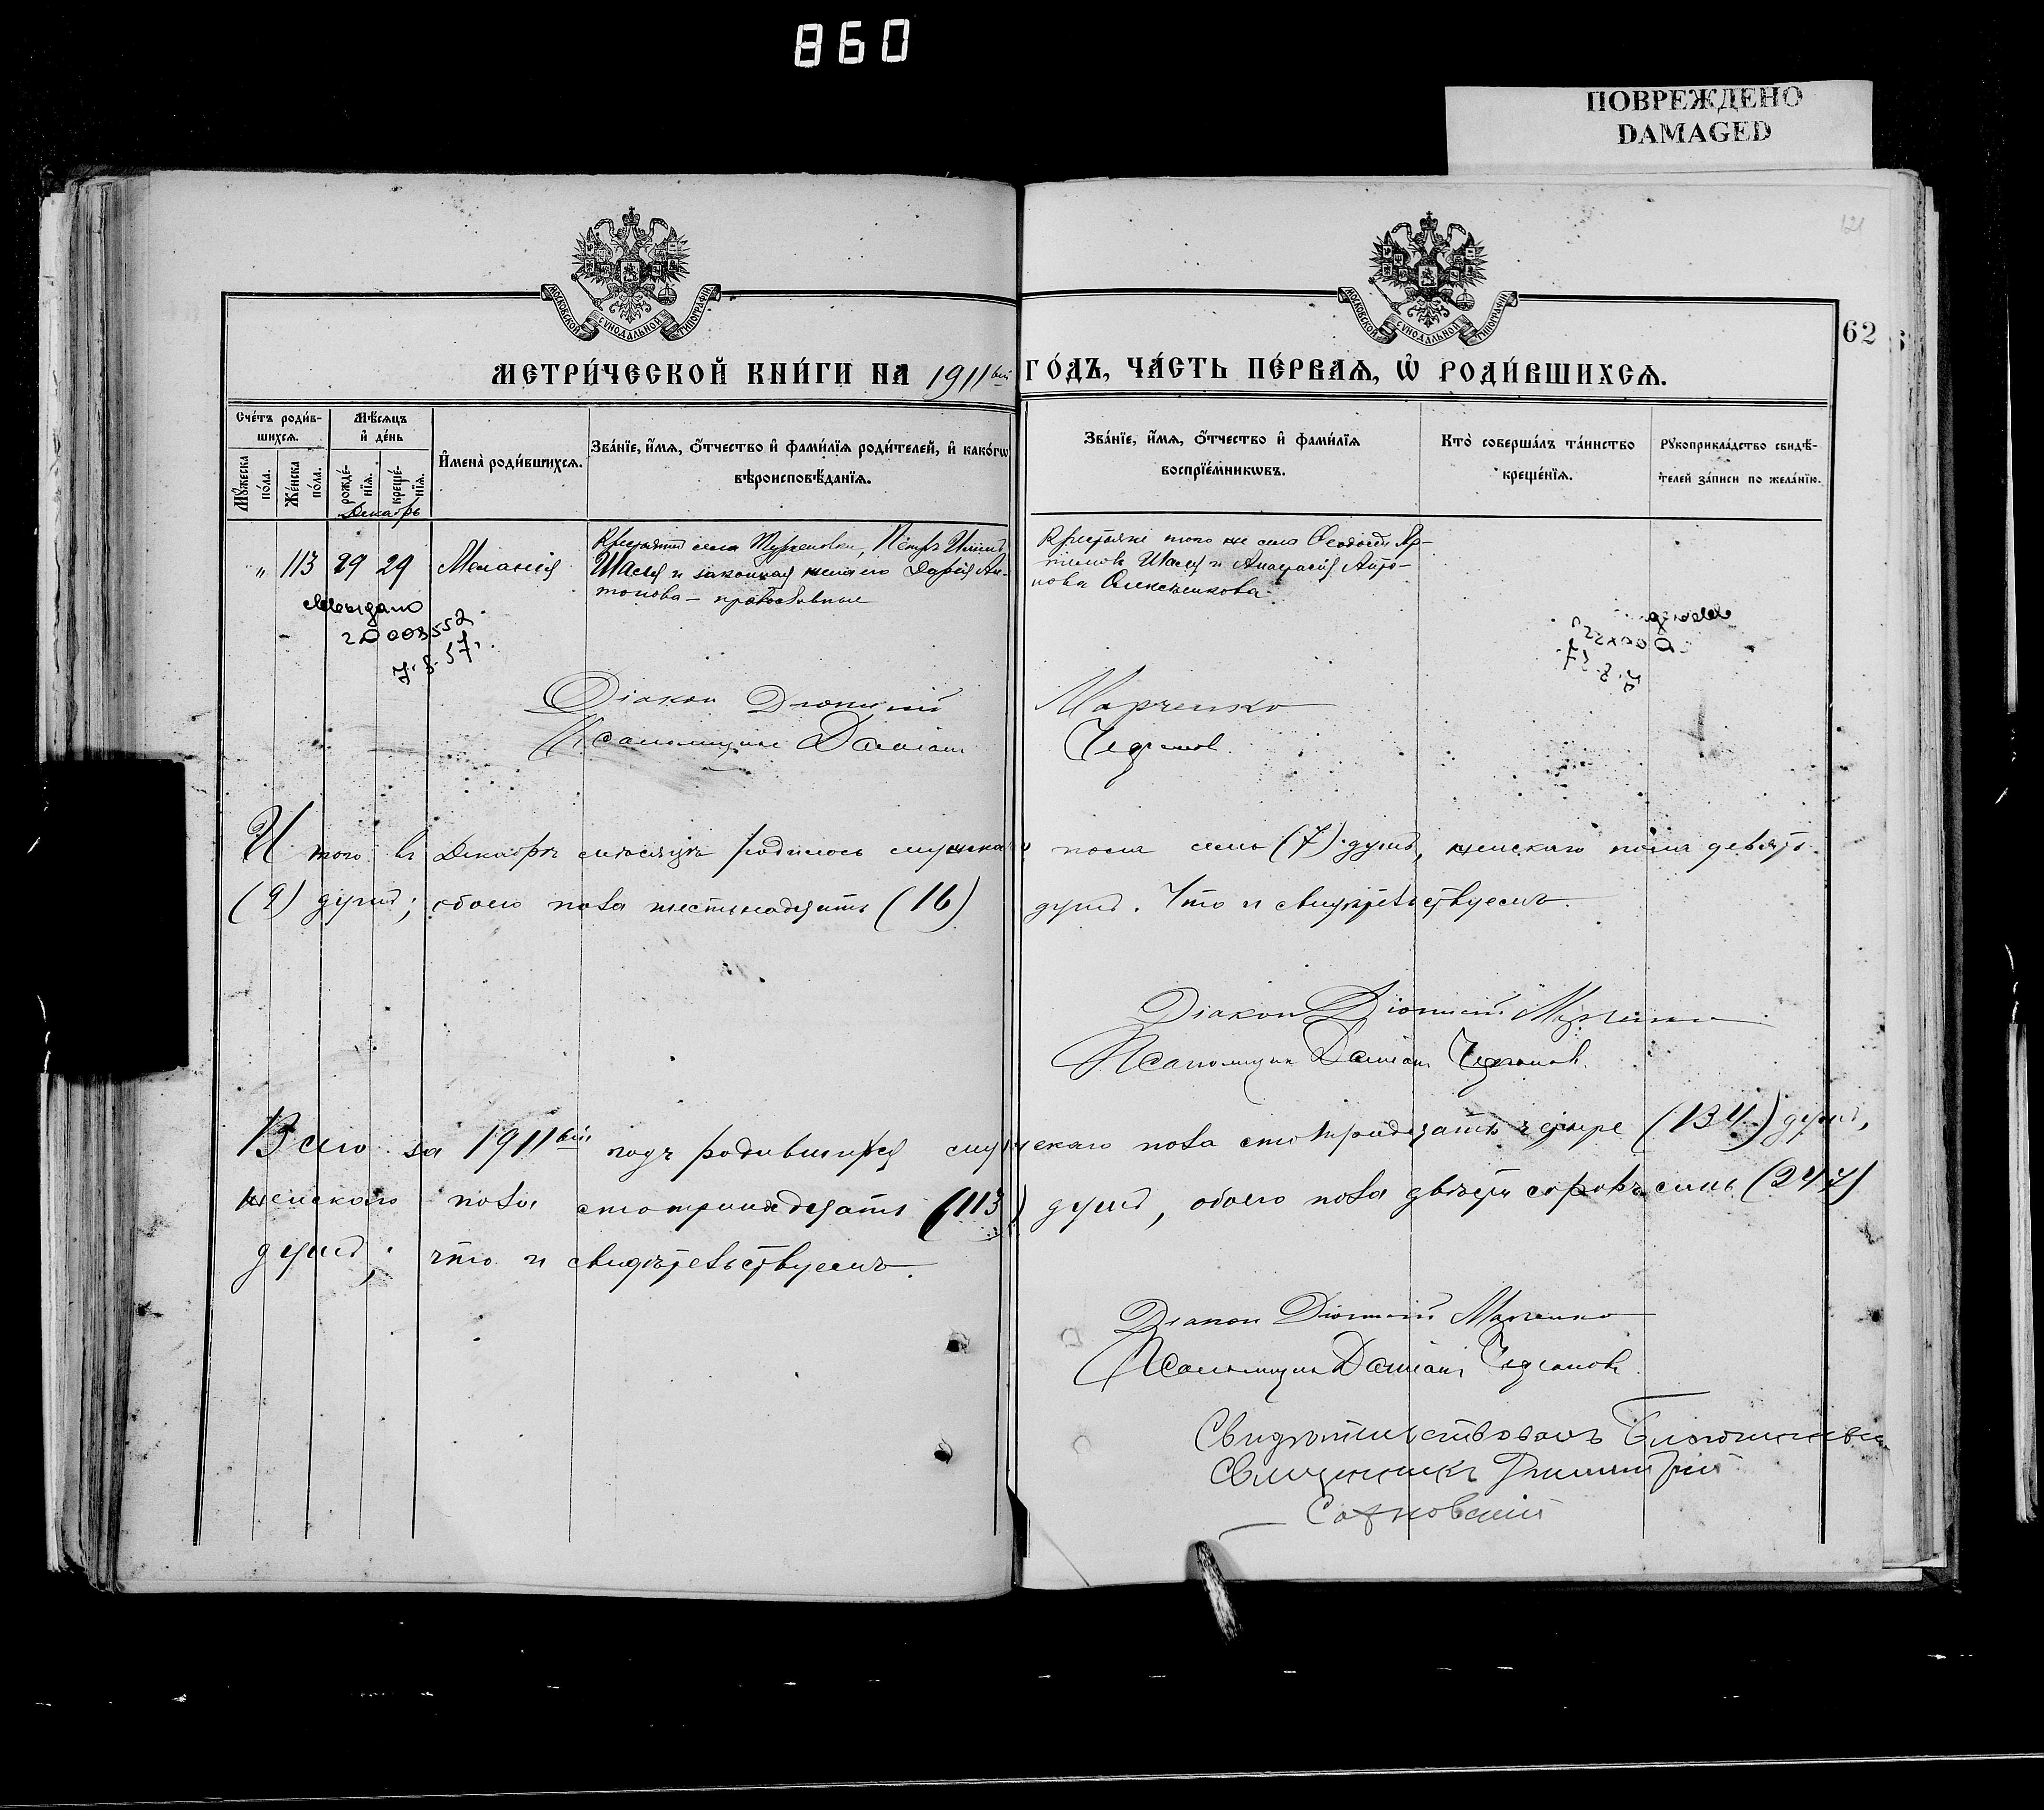 860
ПОВРЕЖДЕНО
DAMAGED
121
МОСКОВСКОЙ СѴНОДАЛЬНОЙ ТИПОГРАФІИ
МОСКОВСКОЙ СѴНОДАЛЬНОЙ ТИПОГРАФІИ
62
МЕТРИ́ЧЕСКОЙ КНИ́ГИ НА 1911вый ГО́ДЪ, ЧА́СТЬ ПЕ́РВАѦ, Ѡ҆ РОДИ́ВШИХСѦ.
Сче́тъ роди́в-
шихсѧ.
Мꙋ́жеска
по́ла.
Же́нска
по́ла.
Мѣ́сѧцъ
и҆ де́нь
рожде́-
нїѧ.
креще́-
нїѧ.
Декабрь
И҆мена̀ роди́вшихсѧ.
Зва́нїе, и҆́мѧ, ѻ҆́тчество и҆ фами́лїѧ роди́телей, и҆ како́гѡ
вѣроисповѣ́данїѧ.
Зва́нїе, и҆́мѧ, ѻ҆́тчество и҆ фами́лїѧ
воспрїе́мникѡвъ.
Кто̀ соверша́лъ та́инство
креще́нїѧ.
Рꙋкоприкла́дство свидѣ́-
телей за́писи по жела́нїю.
„ 113 29 29 Меланія
Крестьянин села Петръ
Шаля и законная жена его Дарія Ан-
тонова – православные
Крестьяне того же села Ѳеодосій Ар-
Шаля и Анастасія Анто-
нова
выдано
7.8.57
Діаконъ Діонисій Марченко
Псаломщикъ Даміанъ
И того въ Декабрѣ мѣсяцѣ родилось мужскаго пола семь (7) душъ, женскаго пола девять
(9) душъ; обоего пола шестьнадцать (16) душъ. Что и свидѣтельствуемъ.
Діаконъ Діонисій Марченко
Псаломщикъ Даміанъ
Всего за 1911вый годъ родившихся мужескаго пола сто тридцать четыре (134) душъ,
женскаго пола сто тринадцать (113) душъ, обоего пола двѣсти сорокъ семь (247)
душъ; что и свидѣтельствуемъ.
Діаконъ Діонисій Марченко
Псаломщикъ Даміанъ
Свидѣтельствовалъ Благочинный
Священникъ Димитрій